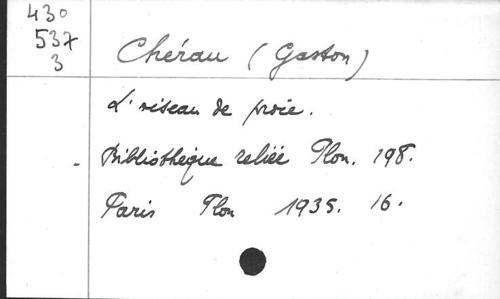 430
537
3
Chérau (Gaston)
L'oiseau de proie.
Bibliothèque reliée Plon. 198.
Paris Plon 1935. 16.